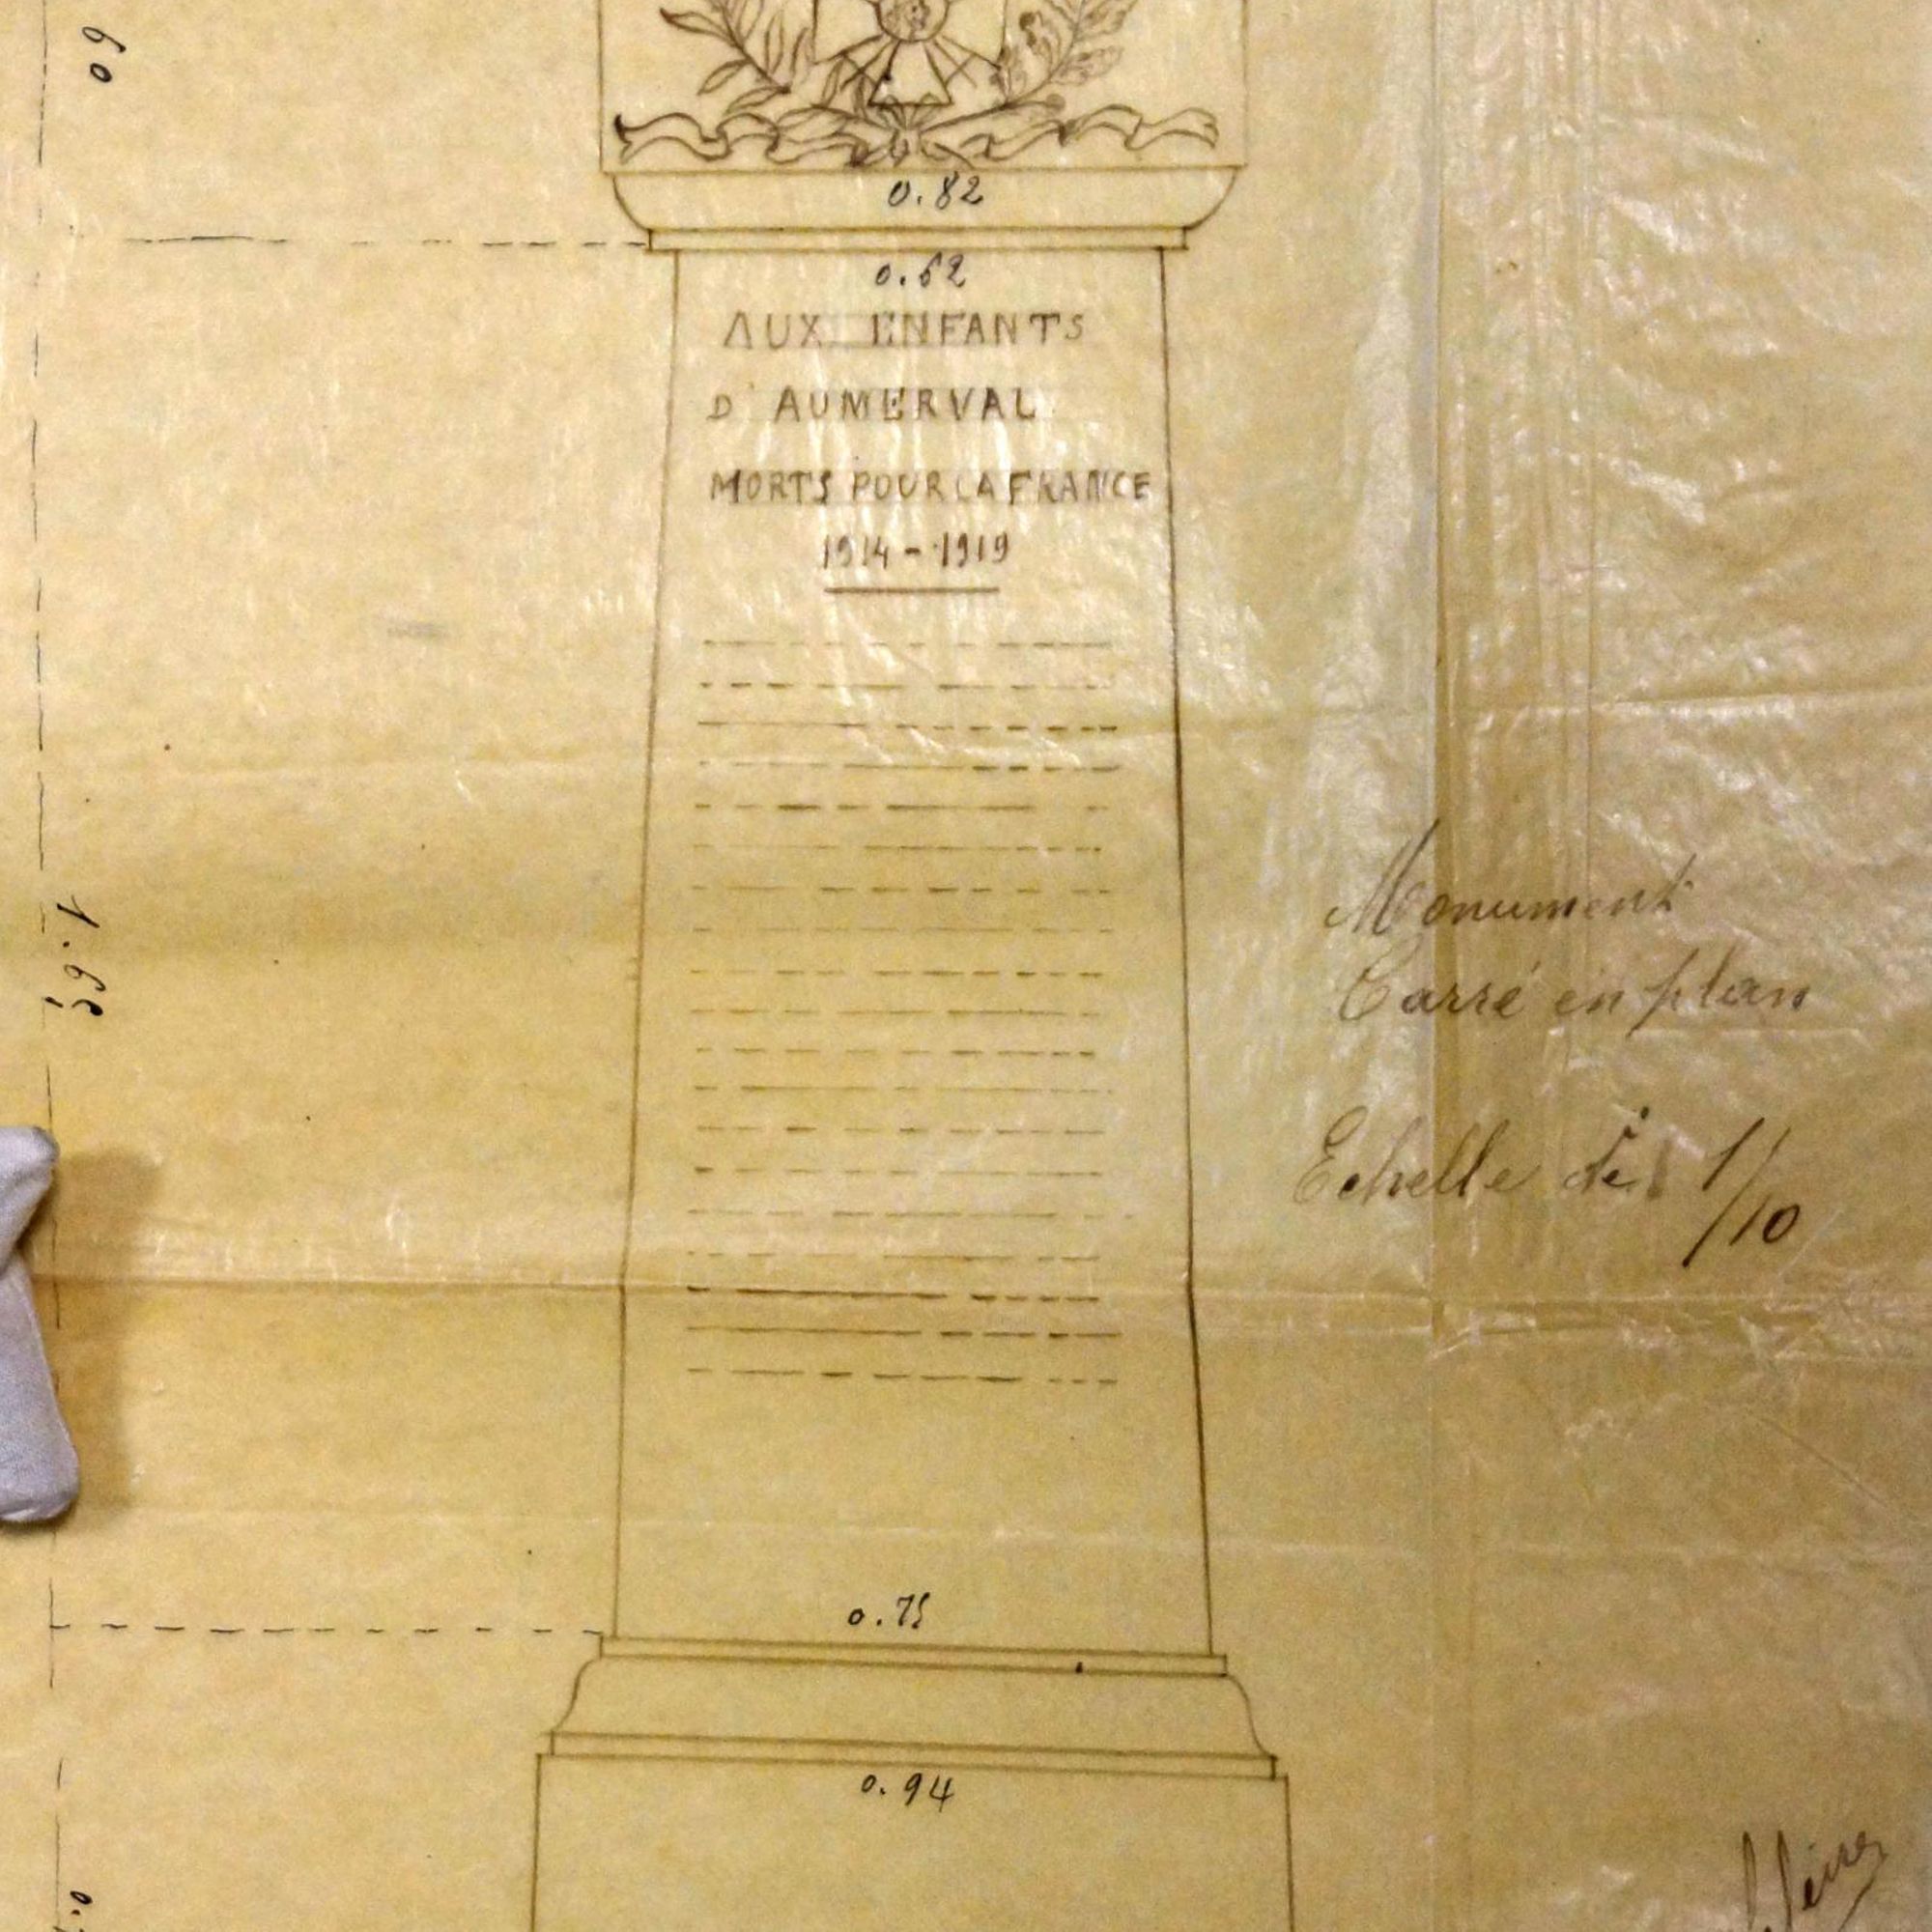 60
0.82
0.62
AUX ENFANTS
D'AUMERVAL
MORTS POUR LA FRANCE
1914 - 1919
1.65
Monument
Carré en plan
Echelle de 1/10
0.75
0.94